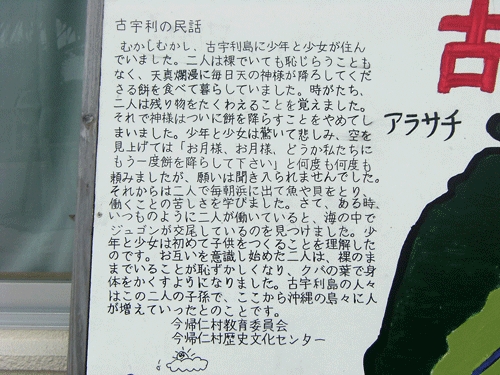 古宇利の民話
むかしむかし、古宇利島に少年と少女が住ん
でいました。二人は裸でいても恥じらうことも
なく、天真爛漫に毎日天の神様が降ろしてくだ
さる餅を食べて暮らしていました。時がたち、
二人は残り物をたくわえることを覚えました。
それで神様はついに餅を降らすことをやめてし
まいました。少年と少女は驚いて悲しみ、空を
見上げては「お月様、お月様、どうか私たちに
もう一度餅を降らして下さい」と何度も何度も
頼みましたが、願いは聞き入れられませんでした。
それからは二人で毎朝浜に出て魚や貝をとり、
働くことの苦しさを学びました。さて、ある時
いつものように二人が働いていると、海の中で
ジュゴンが交尾しているのを見つけました。少
年と少女は初めて子供をつくることを理解した
のです。お互いを意識し始めた二人は、裸のま
までいることが恥ずかしくなり、クバの葉で身
体をかくすよりになりました。古宇利島の人々
はこの二人の子孫で、ここから沖縄の島々に人
が増えていったとのことです。
今帰仁村教育委員会
今帰仁村歴史文化センター
古
アラサチ